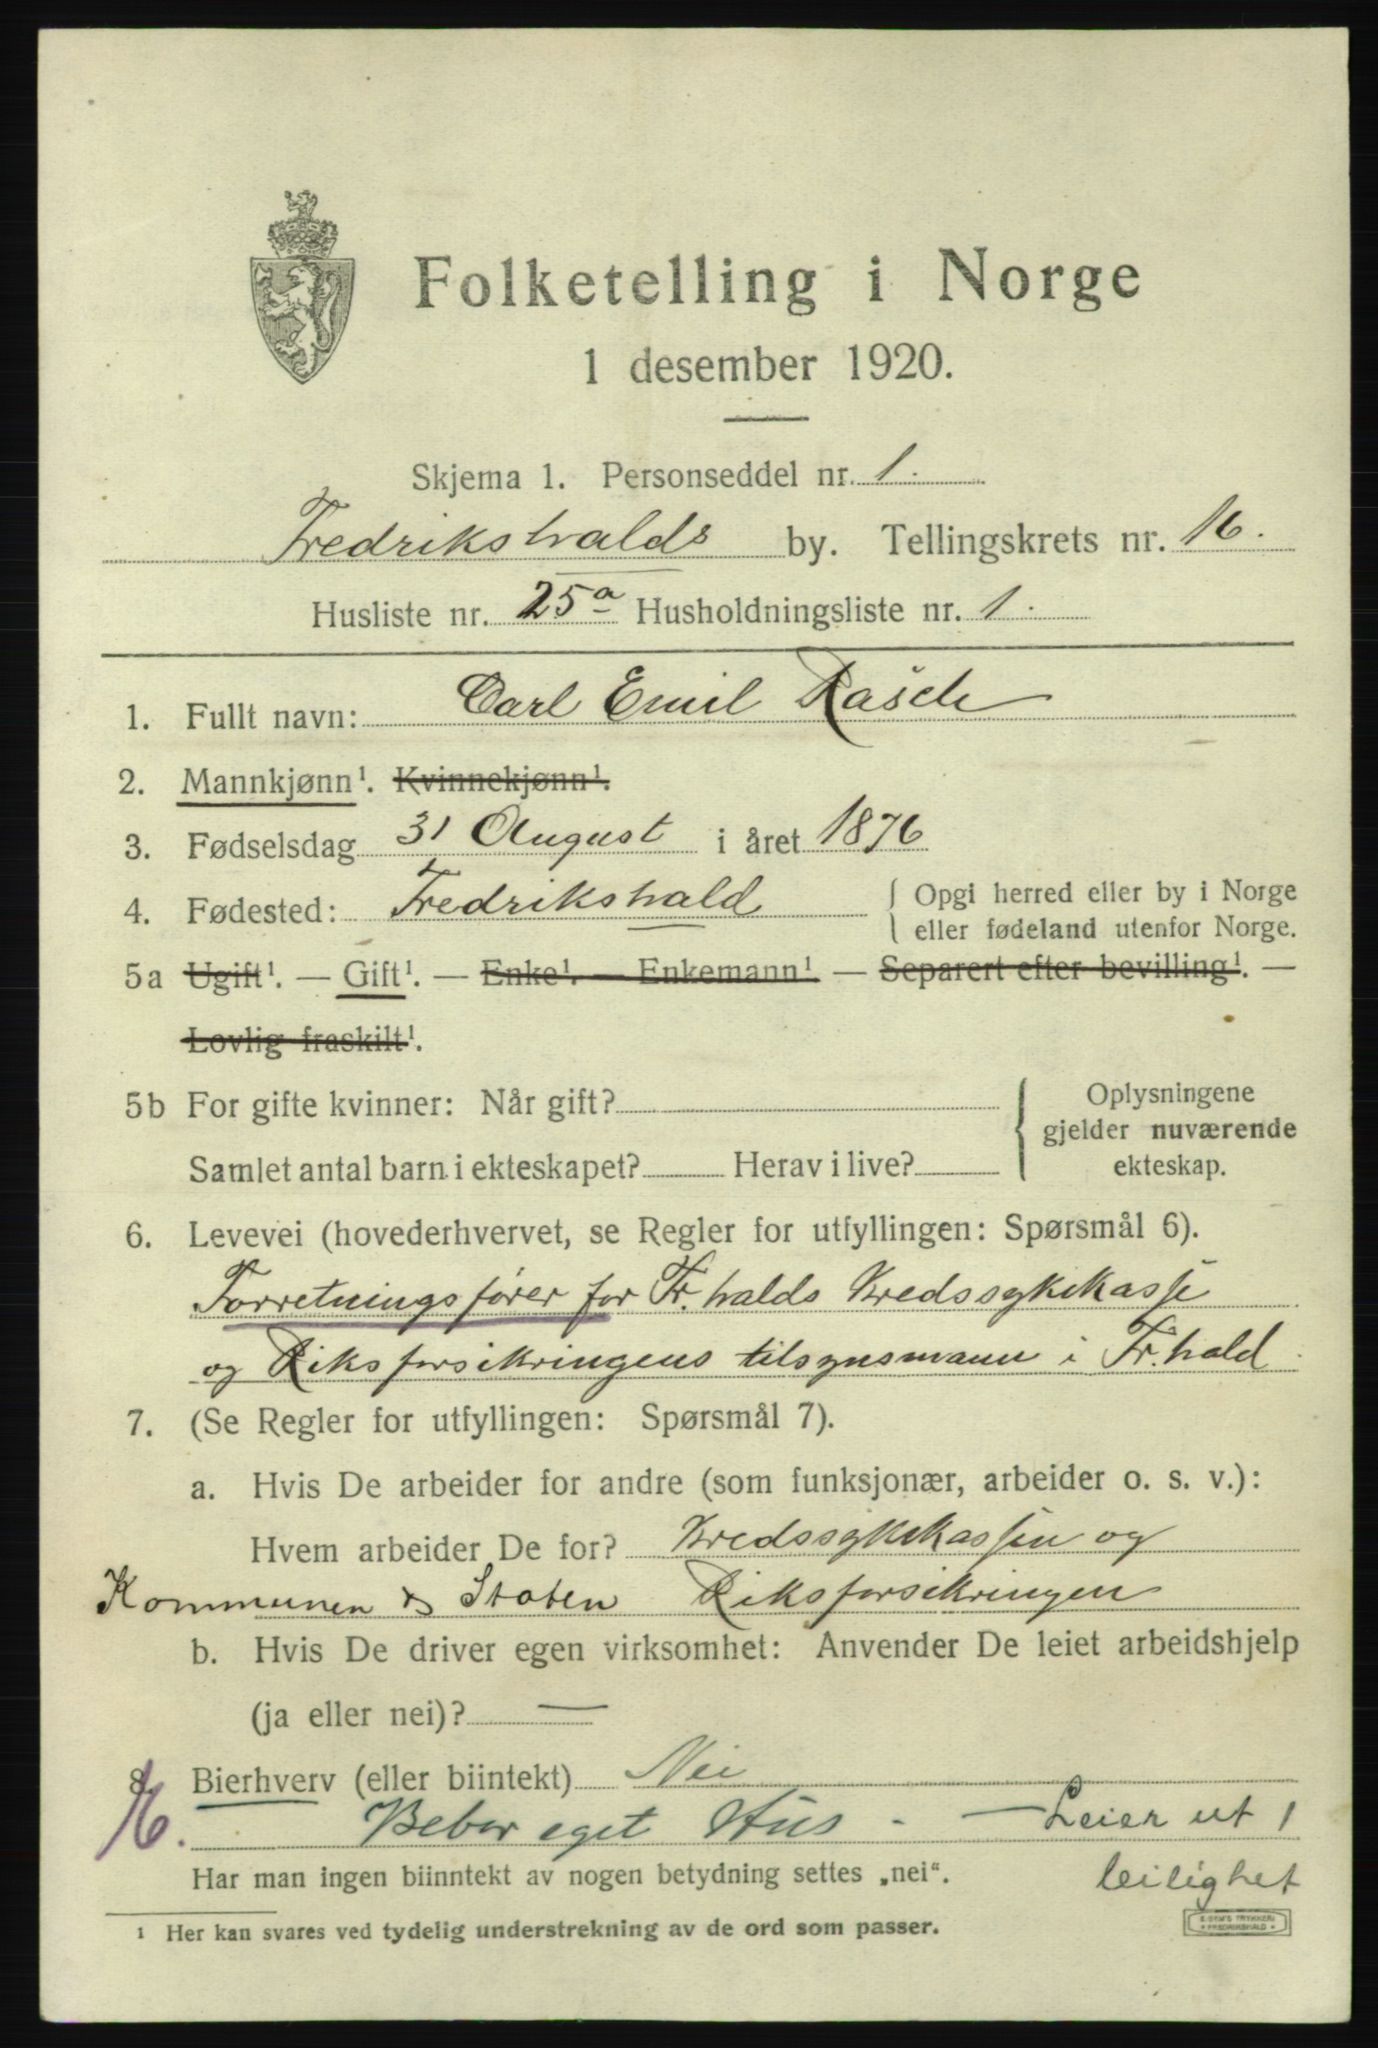 Folketelling i Norge
1 desember 1920.
Skjema 1. Personseddel nr. 1.
Fredrikshalds by. Tellingskrets nr. 16.
Husliste nr. 25a Husholdningsliste nr. 1.
1. Fullt navn: Carl Emil Rasch
2. Mannkjønn¹. Kvinnekjønn¹.
3. Fødselsdag 31 August i året 1876
4. Fødested: Fredrikshald { Opgi herred eller by i Norge
eller fødeland utenfor Norge.
5a Ugift¹. — Gift¹. — Enke¹. — Enkemann¹ — Separert efter bevilling¹. —
Lovlig fraskilt¹.
5b For gifte kvinner: Når gift? { Oplysningene
gjelder nuværende
Samlet antal barn i ekteskapet? Herav i live? ekteskap.
6. Levevei (hovederhvervet, se Regler for utfyllingen: Spørsmål 6).
Forretningsfører for Fr.halds Kredssykekasse
og Riksforsikringens tilsynsmann i Fr.hald
7. (Se Regler for utfyllingen: Spørsmål 7).
a. Hvis De arbeider for andre (som funksjonær, arbeider o. s. v.):
Hvem arbeider De for? Kredssykekassen og
Kommunen & Staten Riksforsikringen
b. Hvis De driver egen virksomhet: Anvender De leiet arbeidshjelp
(ja eller nei)? —
8. Bierhverv (eller biintekt) Nei
16. Bebor eget Hus - — Leier ut 1
Har man ingen biinntekt av nogen betydning settes „nei“. leilighet
¹ Her kan svares ved tydelig understrekning av de ord som passer.
TRYKKERI
FREDRIKSHALD